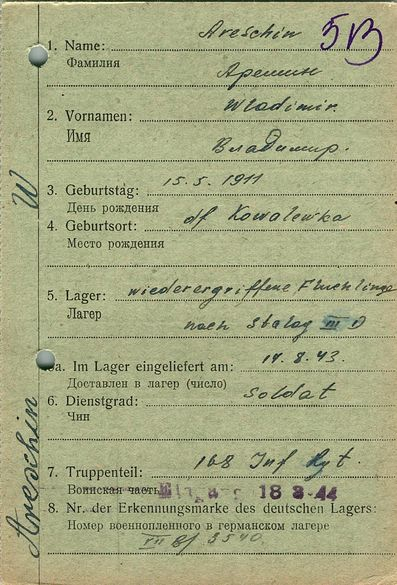 Areschin
5B
1. Name:
Фамилия
Арешин
Wladimir.
2. Vornamen:
Имя
Владимир.
3. Geburtstag: 15.5.1911
День рождения
4. Geburtsort: df Kowalewka
Место рождения
5. Lager: wiederergriffene Flüchlinge
Лагер
nach Stalag III D
5a. Im Lager eingeliefert am: 14.8.43.
Доставлен в лагер (число)
6. Dienstgrad: Soldat
Чин
7. Truppenteil: 168 Inf Rgt.
Воинская часть
Eingang 18 3 44
8. Nr. der Erkennungsmarke des deutschen Lagers:
Номер военнопленного в германском лагере
3540.
W
Areschin